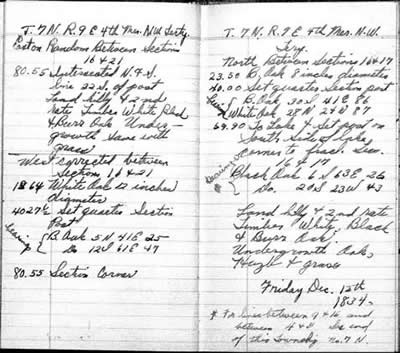 T. 7 N. R. 9 E 4th Mer. N.W. Terty.
Random Between Sections
16 & 21
80.55 Intersected N. & S.
line 22 S. of post
Land hilly & 2nd
rate Timber White Blad
& Burr Oak Under-
growth same with
grass
West corrected between
Sections 16 & 21
18.64 White Oak 12 inches
diameter
40.27½ Set quarter Section
Post
bearing { B. Oak 5 N 41 E 25
Do 12 N 61 E 47
80.55 Section Corner
T. 7 N. R. 9 E 4th Mer. N.W.
Tery.
North Between Sections 16 & 17
23.50 B. Oak 8 inches diameter
40.00 Set quarter Section post
B. Oak 30 S 41 E 86
White Oak 28 N 24 W 87
69.90 To Lake & Set post on
South side of lake
corner to fract. Sec.
16 & 17
bearing { Black Oak 6 S 63 E 26
Do. 20 S 23 W 43
Land hilly & 2nd rate
Timber White, Black
& Burr Oak
Undergrowth Oak,
& grass
Friday Dec. 12th
1834.
* For lines between 9 & 16 and
between 4 & 9 see end
of this Township No. 7 N.